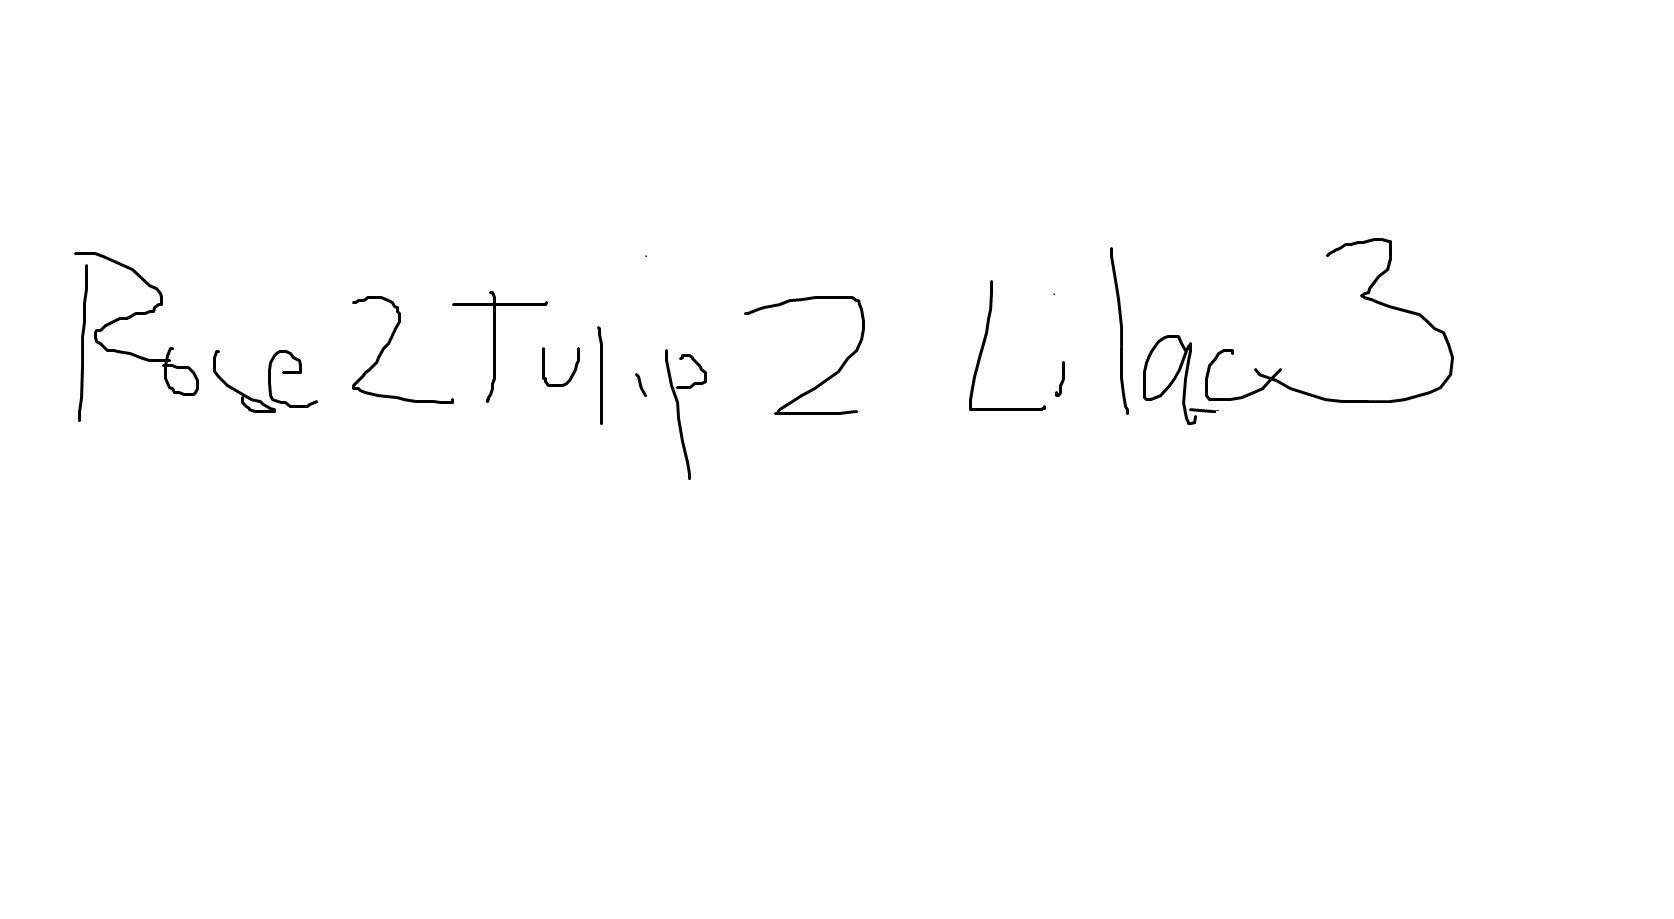 Rose2Tulip2 Lilac3